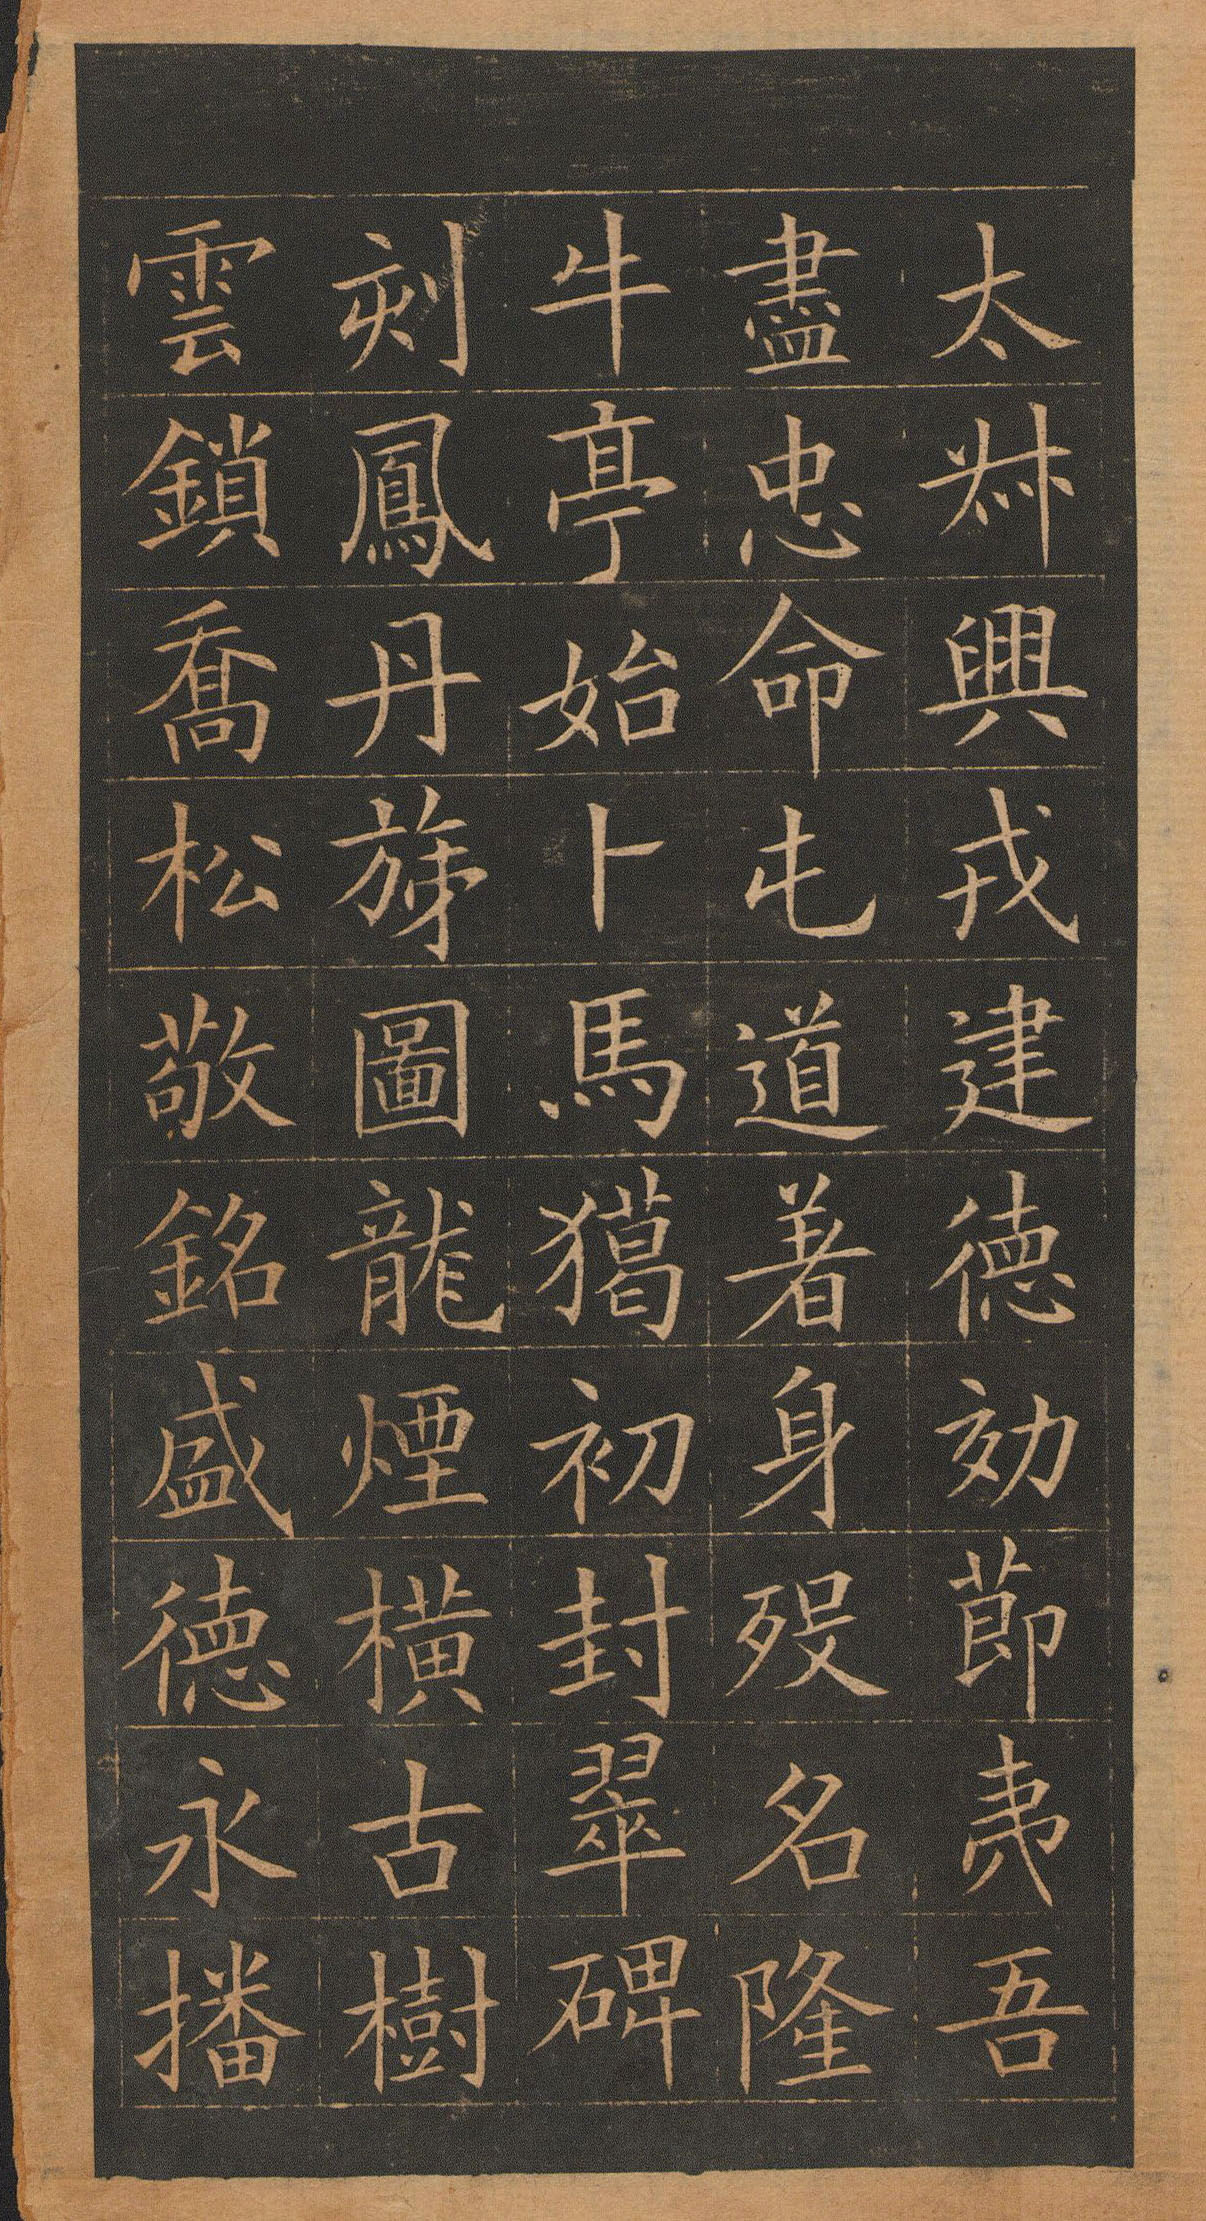 太叔興戎建德効莭夷吾
盡忠命屯道着身歿名隆
牛亭始卜馬獦初封翠碑
刻鳳丹旐圖龍煙橫古樹
雲鎖喬松敬銘盛德永播